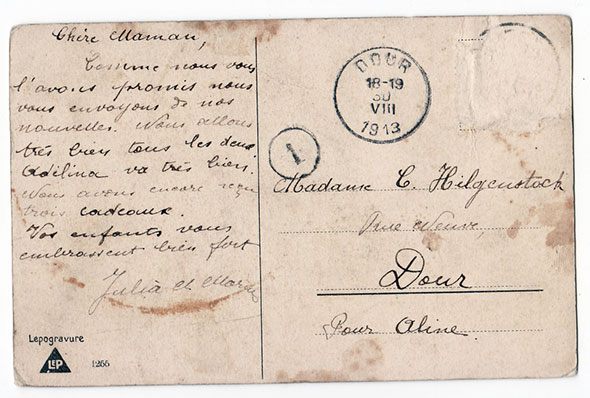 Chère Maman,
Comme nous vous
l'avons promis nous
vous envoyons de nos
nouvelles. Nous allons
très bien tous les deux.
Adélina va très bien.
Nous avons encore reçu
trois cadeaux.
Vos enfants vous
embrassent bien fort
Julia et
Lepogravure
LEP
1255
DOUR
18-19
30
VIII
1913
1
Madame C. Hilgenstock
Rue Neuve,
Dour
Pour Aline.